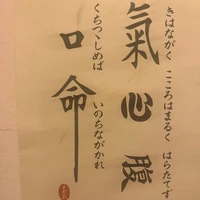 きはながく こころはまるく はらたてず
氣心腹
くちつゝしめば いのちながかれ
口命